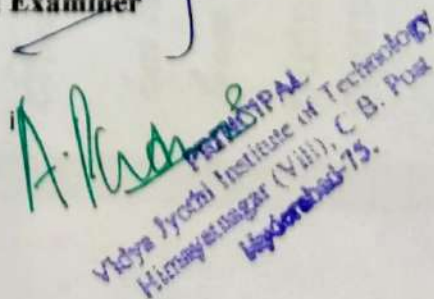 Examiner
PRINCIPAL
Vidya Jyothi Institute of Technology
Himayatnagar (Vill), C. B. Post
Hyderabad-75.